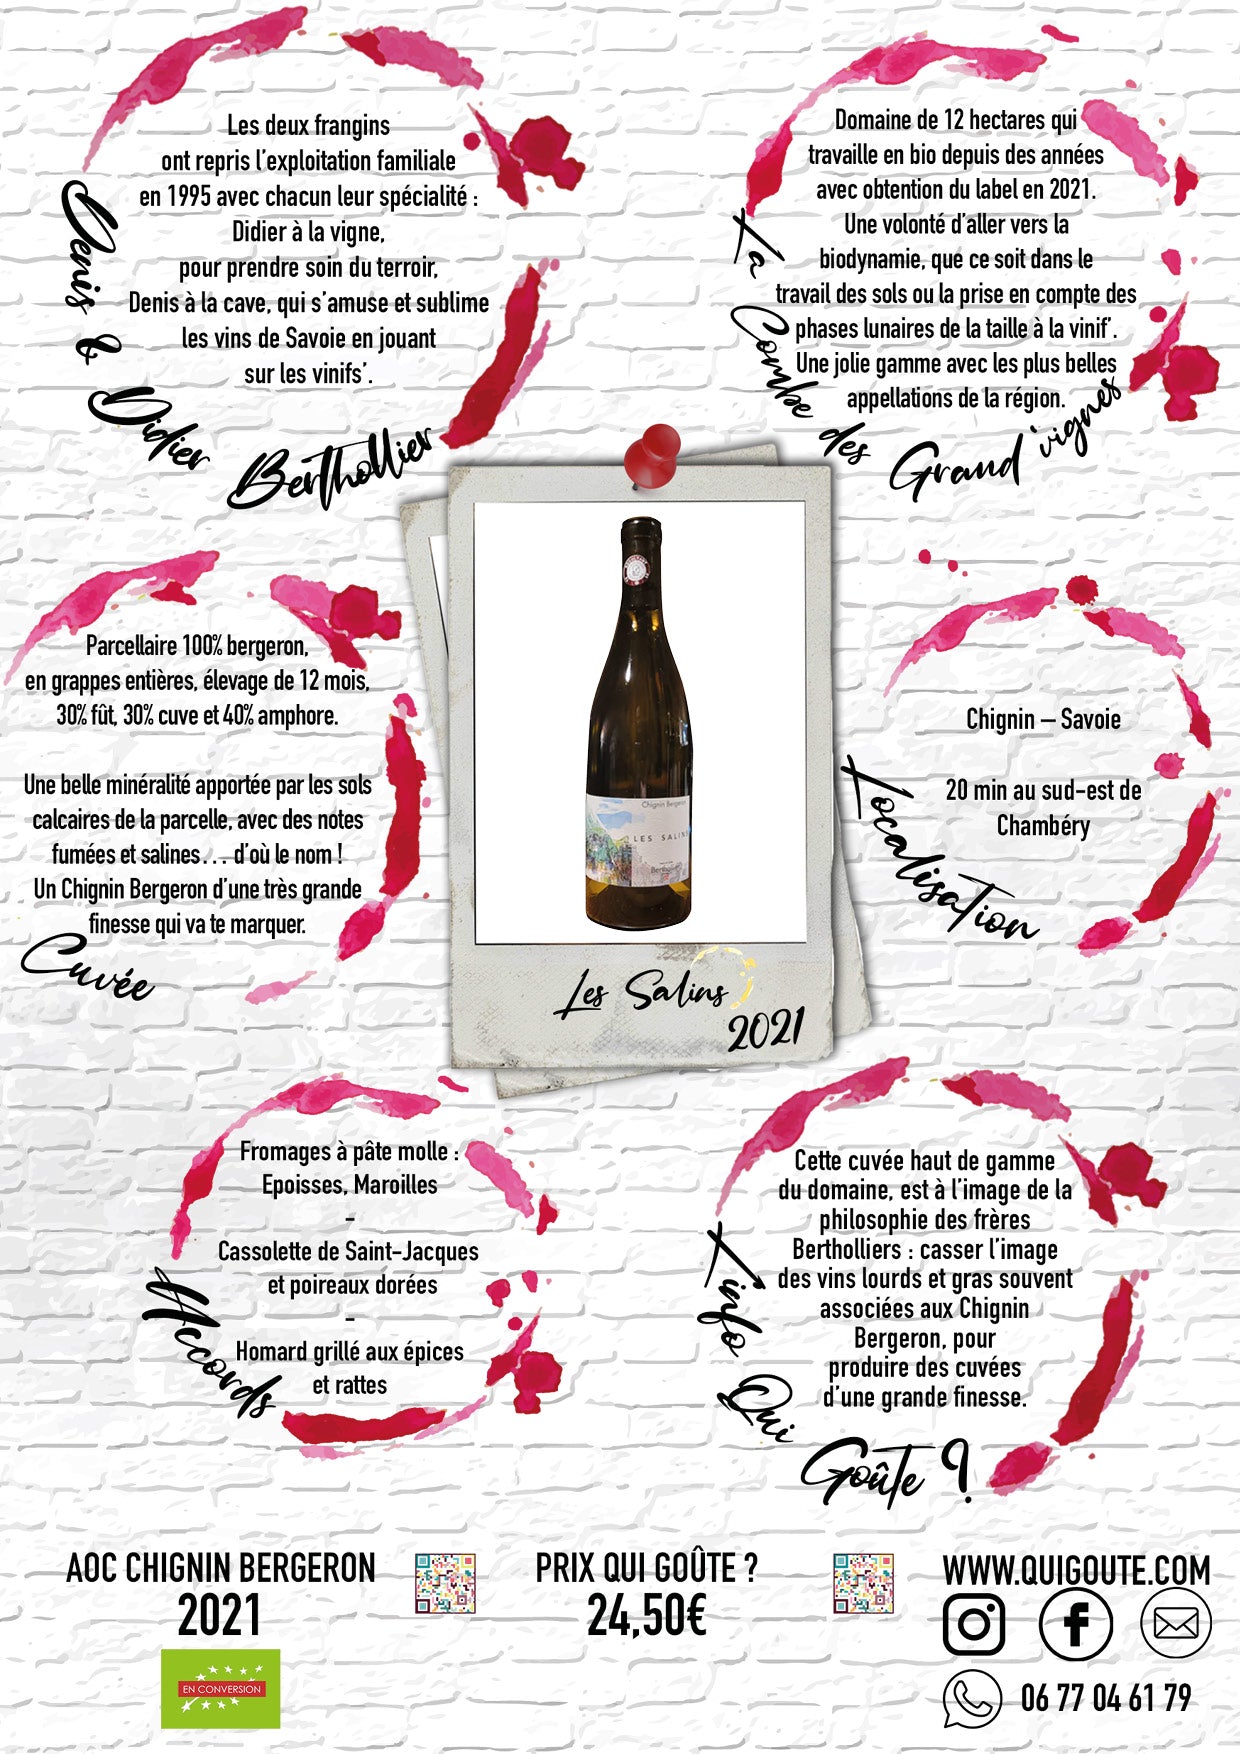 Les deux frangins
ont repris l'exploitation familiale
en 1995 avec chacun leur spécialité :
Didier à la vigne,
pour prendre soin du terroir,
Denis à la cave, qui s'amuse et sublime
les vins de Savoie en jouant
sur les vinifs'.
Denis & Didier Berthollier
Domaine de 12 hectares qui
travaille en bio depuis des années
avec obtention du label en 2021.
Une volonté d'aller vers la
biodynamie, que ce soit dans le
travail des sols ou la prise en compte des
phases lunaires de la taille à la vinif'.
Une jolie gamme avec les plus belles
appellations de la région.
La Combe des Grand'vignes
Parcellaire 100% bergeron,
en grappes entières, élevage de 12 mois,
30% fût, 30% cuve et 40% amphore.
Une belle minéralité apportée par les sols
calcaires de la parcelle, avec des notes
fumées et salines... d'où le nom !
Un Chignin Bergeron d'une très grande
finesse qui va te marquer.
Cuvée
Chignin Bergeron
LES SALINS
Les Salins
2021
Chignin – Savoie
20 min au sud-est de
Chambéry
Localisation
Fromages à pâte molle :
Epoisses, Maroilles
-
Cassolette de Saint-Jacques
et poireaux dorées
-
Homard grillé aux épices
et rattes
Accords
Cette cuvée haut de gamme
du domaine, est à l'image de la
philosophie des frères
Bertholliers : casser l'image
des vins lourds et gras souvent
associées aux Chignin
Bergeron, pour
produire des cuvées
d'une grande finesse.
L'info Qui Goûte ?
AOC CHIGNIN BERGERON
2021
EN CONVERSION
PRIX QUI GOÛTE ?
24,50€
WWW.QUIGOUTE.COM
06 77 04 61 79